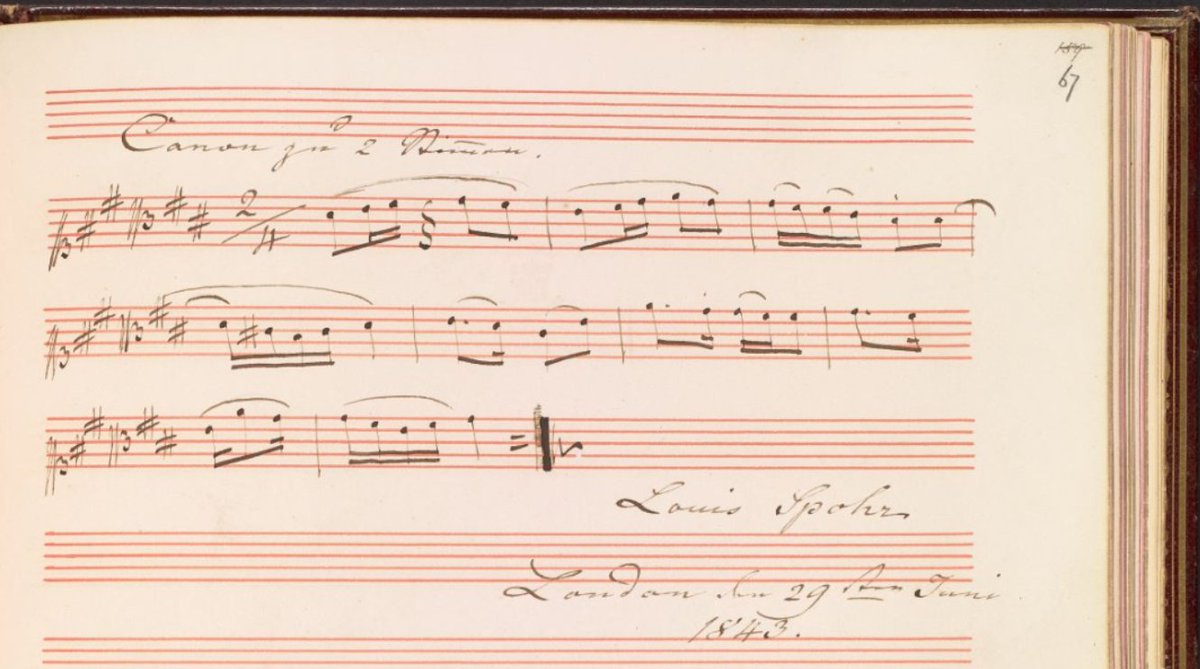 67
Canon zu 2 Stimmen.
2/4
Louis Spohr
London den 29sten Juni
1843.